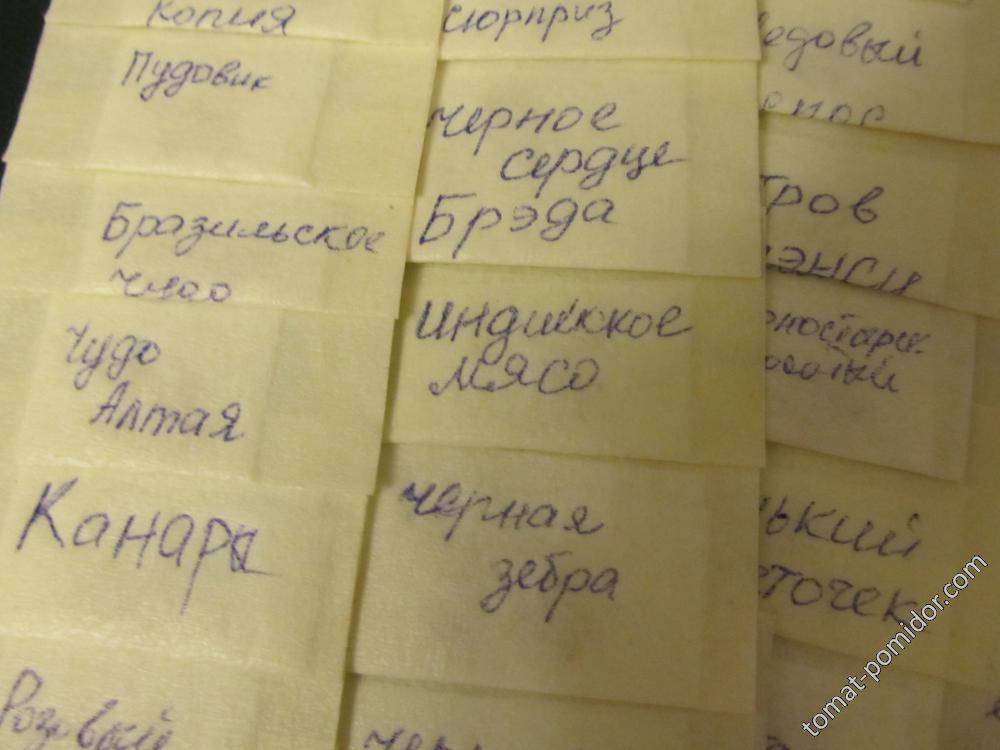 копия
Пудовик
Бразильское
чудо
Чудо
Алтая
Канары
Розовый
сюрприз
черное
сердце
Брэда
индийское
мясо
черная
зебра
едовый
тров
энси
ький
точек
tomat-pomidor.com